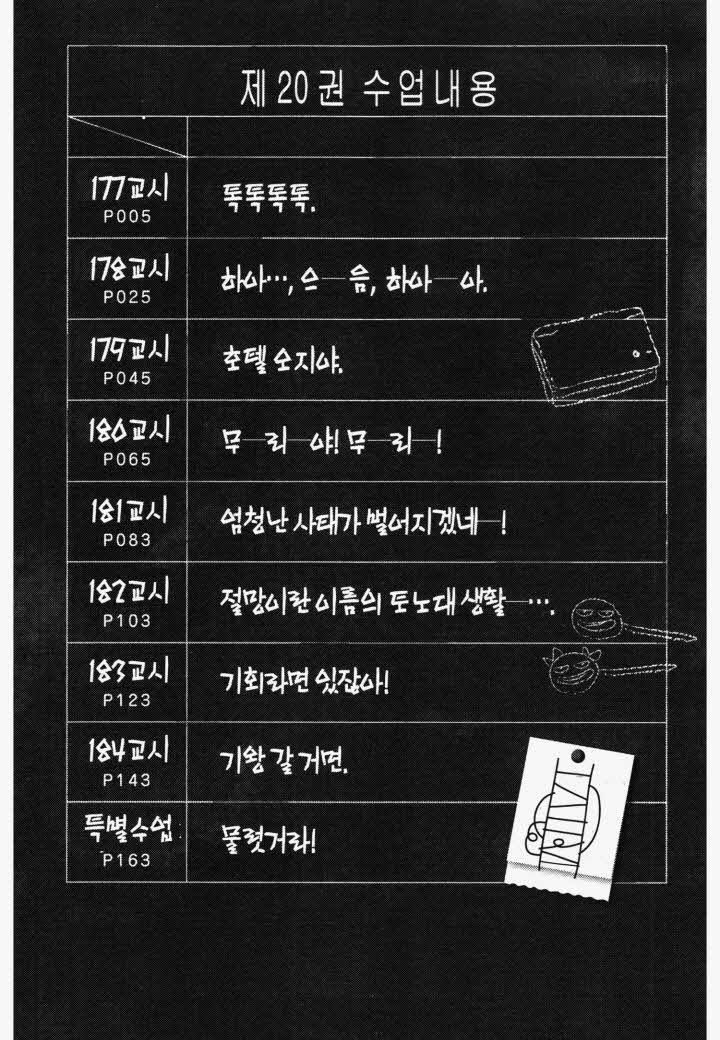 제 20 권 수업내용
177교시
P005
톡톡톡톡.
178교시
P025
하아…, 스—음, 하아—아.
179교시
P045
호텔 오지야.
180교시
P065
무—리—야! 무—리—!
181교시
P083
엄청난 사태가 벌어지겠네—!
182교시
P103
절망이란 이름의 토노대 생활—….
183교시
P123
기회라면 있잖아!
184교시
P143
기왕 갈 거면.
특별수업
P163
물렀거라!